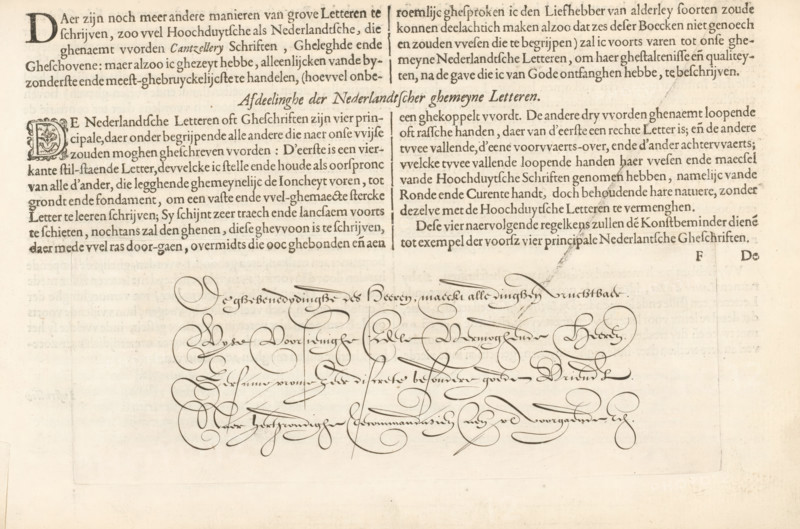 DAer zijn noch meer andere manieren van grove Letteren te
schrijven, zoo vvel Hoochduytsche als Nederlandtsche, die
ghenaemt vvorden Cantzellery Schriften, Gheleghde ende
Gheschovene: maer alzoo ic ghezeyt hebbe, alleenlijcken vande by-
zonderste ende meest-ghebruyckelijcste te handelen, (hoevvel onbe-
roemlijc ghesproken ic den Liefhebber van alderley soorten zoude
konnen deelachtich maken alzoo dat zes deser Boecken niet genoech
en zouden vvesen die te begrijpen) zal ic voorts varen tot onse ghe-
meyne Nederlandtsche Letteren, om haer ghestaltenisse eñ qualitey-
ten, na de gave die ic van Gode ontfanghen hebbe, te beschrijven.
Afdeelinghe der Nederlandtscher ghemeyne Letteren.
DE Nederlandtsche Letteren oft Gheschriften zijn vier prin-
cipale, daer onder begrijpende alle andere die naer onse vvijse
zouden moghen gheschreven vvorden: D'eerste is een vier-
kante stil-staende Letter, devvelcke ic stelle ende houde als oorspronc
van alle d'ander, die legghende ghemeynelijc de Ioncheyt voren, tot
grondt ende fondament, om een vaste ende vvel-ghemaecte stercke
Letter te leeren schrijven; Sy schijnt zeer traech ende lancsaem voorts
te schieten, nochtans zal den ghenen, diese ghevvoon is te schrijven,
daer mede vvel ras door-gaen, overmidts die ooc ghebonden eñ aen
een ghekoppelt vvordt. De andere dry vvorden ghenaemt loopende
oft rassche handen, daer van d'eerste een rechte Letter is; eñ de andere
tvvee vallende, d'eene voorvvaerts-over, ende d'ander achtervvaerts;
vvelcke tvvee vallende loopende handen haer vvesen ende maecsel
van de Hoochduytsche Schriften genomen hebben, namelijc vande
Ronde ende Curente handt, doch behoudende hare natuere, zonder
dezelve met de Hoochduytsche Letteren te vermenghen.
Dese vier naervolgende regelkens zullen dē Konstbeminder dienē
tot exempel der voorsz vier principale Nederlantsche Gheschriften.
F De
De ghebenedydinghe des Heeren, maeckt alle dinghen vruchtbaer.
Wyse Voorsienighe Edele Vermoghende Heeren
Eersame vrome seer discrete besondere goede Vriendt
Naer hertgrondighe Recommandatien